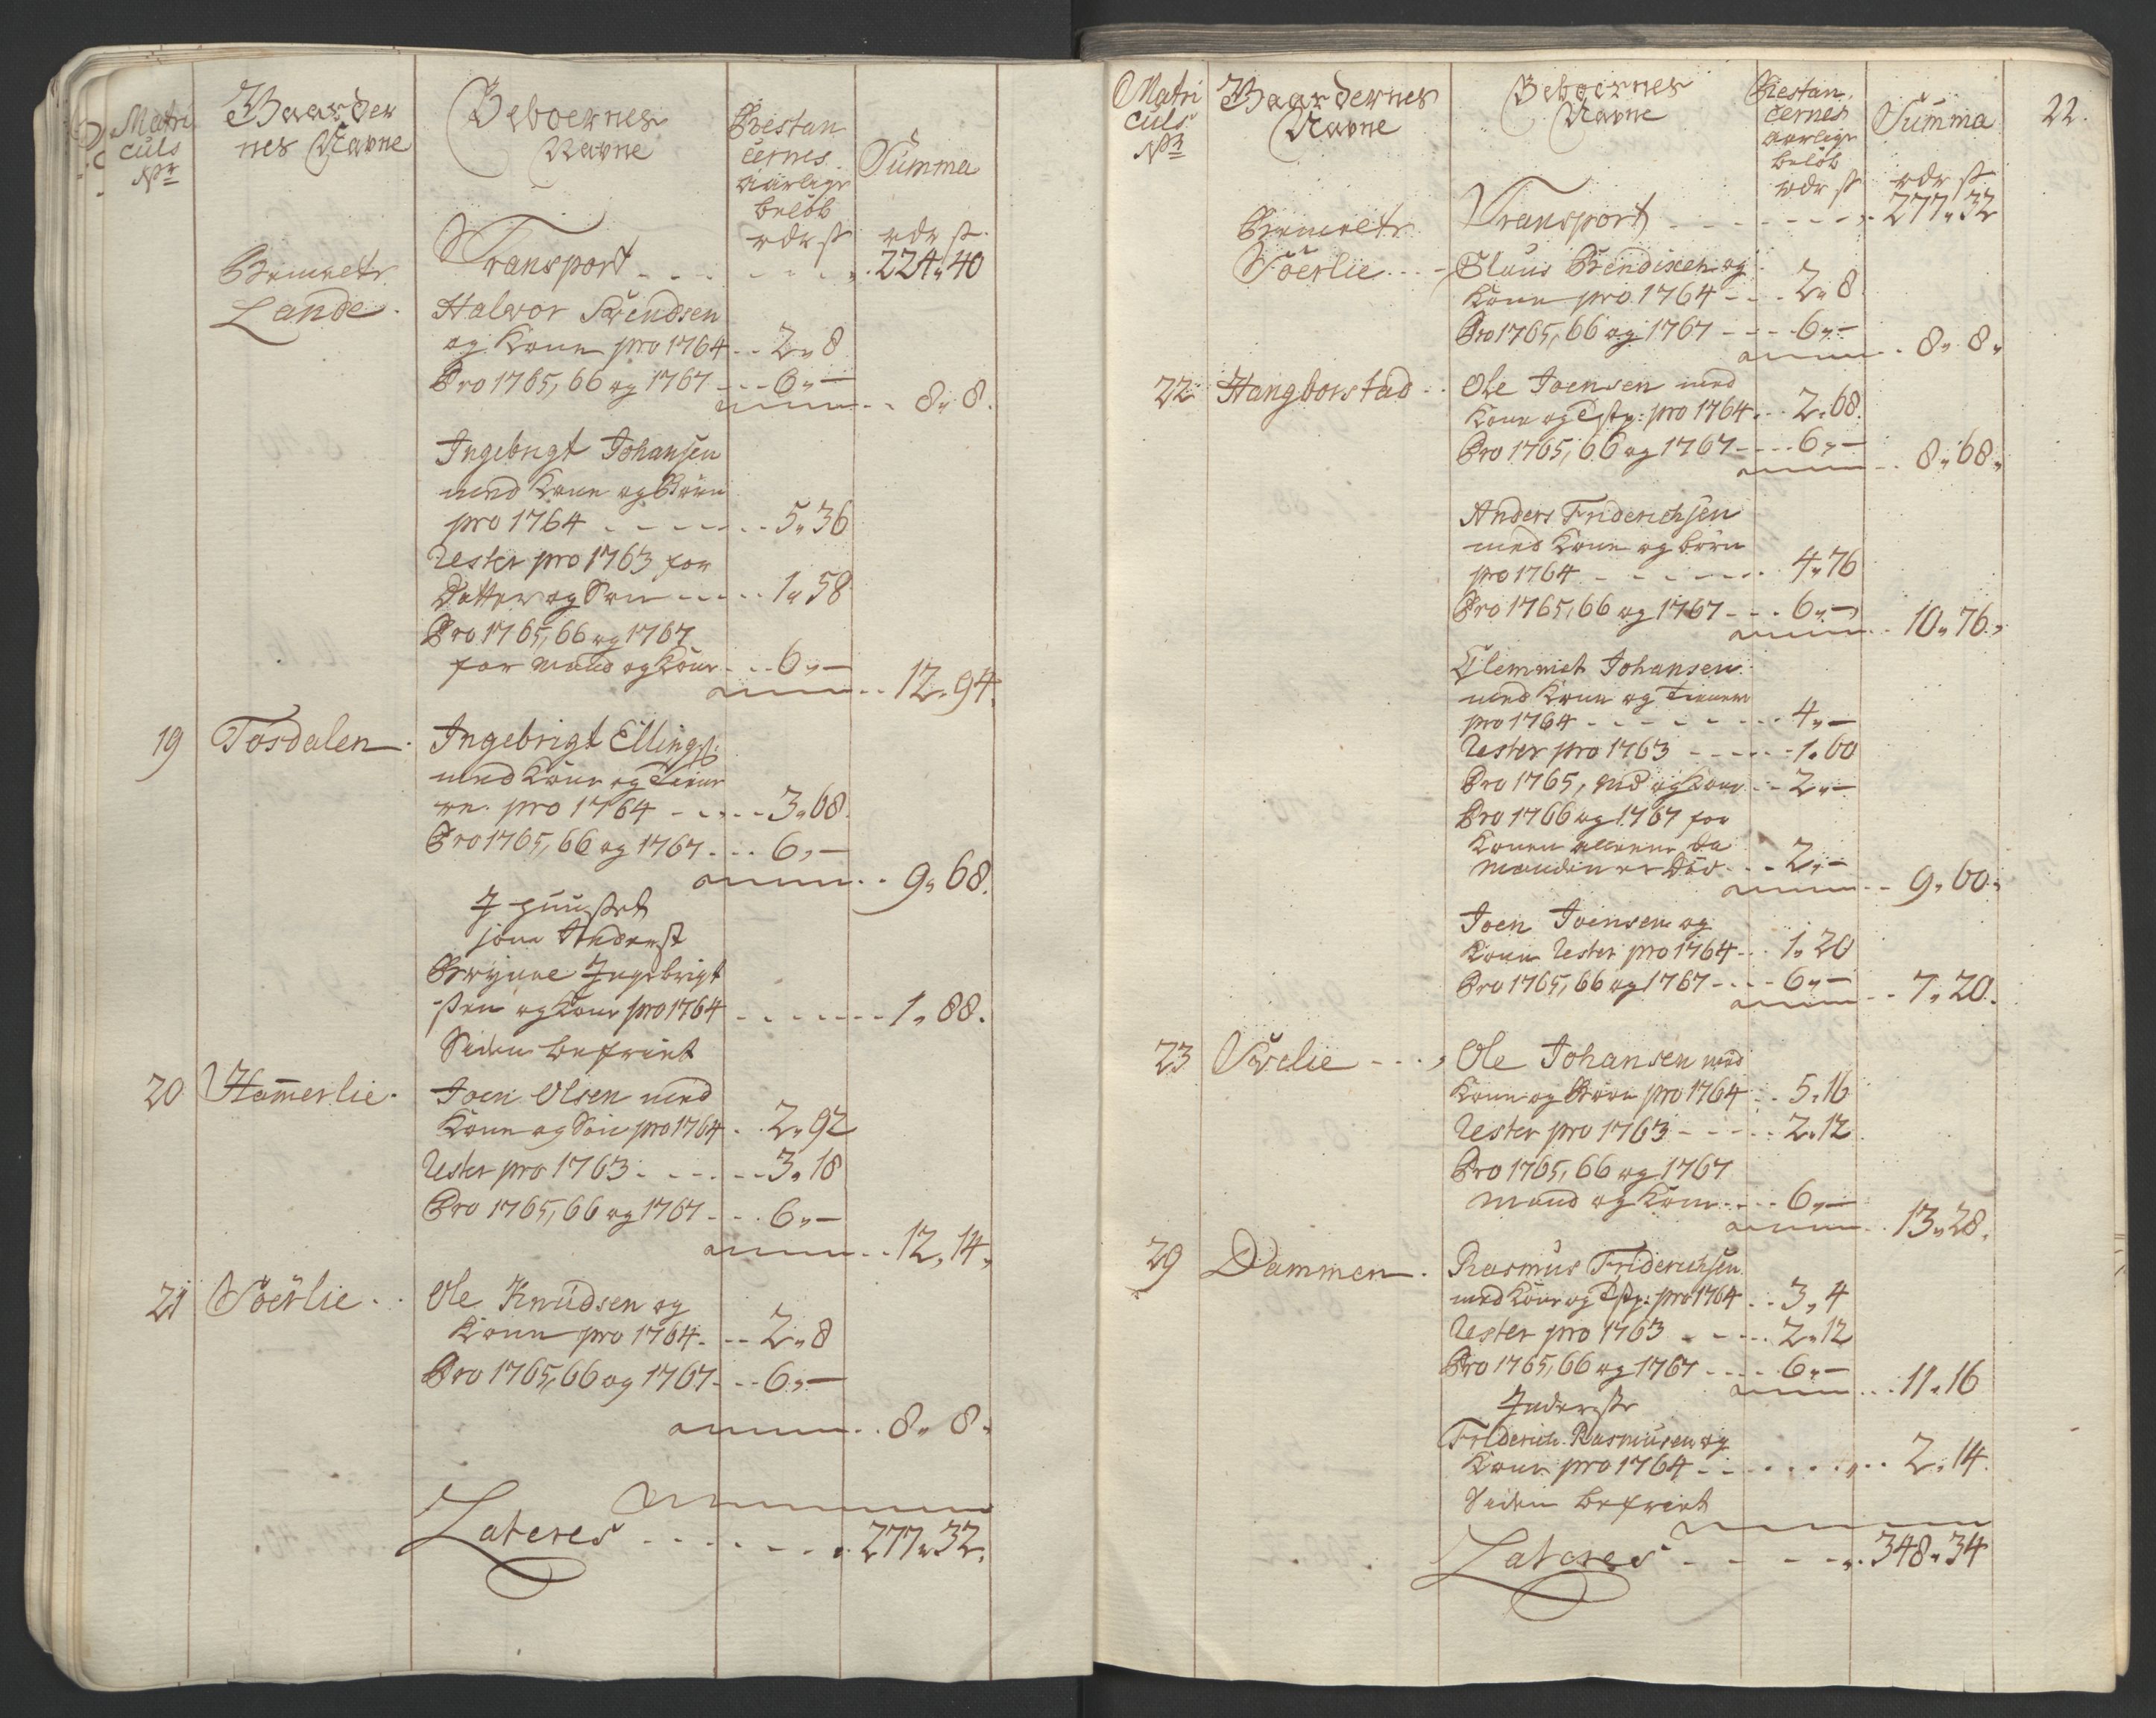 Matri
culs
Nr
Gaarder
nes Navne
Beboernes
Navne
Restan
cernes
Aarlige
beløb
rdr ß
Summa
rdr ß
Transport - - - 224 " 40
Bemelte
Lande
Halvor Svendsen
og Kone pro 1764 - - 2 " 8
Pro 1765, 66 og 1767 - - - 6 " —
8 " 8
Ingebrigt Johansen
med Kone og Børn
pro 1764 - - - - 5 " 36
Rester pro 1763 for
Datter og Søn - - - 1 " 58
Pro 1765, 66 og 1767
for Mand og Kone - - 6 " —
12 " 94
19 Tosdalen
Ingebrigt Ellings:
med Kone og Tiene
re. pro 1764 - - - 3 " 68
Pro 1765, 66 og 1767 - - - 6 " —
9 " 68
I huuset
som Inderst
Brynne Ingebrigt
sen og Kone pro 1764 - - - - 1 " 88
Siden befriet
20 Ham̄erlie
Joen Olsen med
Kone og Søn pro 1764 - - 2 " 92
Rester pro 1763 - - - 3 " 18
Pro 1765, 66 og 1767 - - - 6 " —
12 " 14
21 Søerlie
Ole Knudsen og
Kone pro 1764 - - 2 " 8
Pro 1765, 66 og 1767 - - 6 " —
8 " 8
Lateres - - - - 277 " 32

Matri
culs
Nr
Gaardernes
Navne
Beboernes
Navne
Restan
cernes
Aarlige
beløb
rdr ß
Summa
rdr ß
22.
Transport - - - - 277 " 32
Bemelte
Søerlie
Claus Bendixen og
Kone pro 1764 - - - 2 " 8
Pro 1765, 66 og 1767 - - - 6 " —
8 " 8
22 Hangborstad
Ole Joensen med
Kone og Dsp: pro 1764 - - 2 " 68
Pro 1765, 66 og 1767 - - - 6 " —
8 " 68
Anders Friderichsen
med Kone og børn
pro 1764 - - - - 4 " 76
Pro 1765, 66 og 1767 - - - 6 " —
10 " 76
Clemmet Johansen
med Kone og Tienere
pro 1764 - - - - 4 " —
Rester pro 1763 - - - 1 " 60
Pro 1765, Md og Kone - - 2 " —
Pro 1766 og 1767 for
Konen alleene da
Manden er Død - - - 2 " —
9 " 60
Joen Joensen og
Kone Rester pro 1764 - - 1 " 20
Pro 1765, 66 og 1767 - - - 6 " —
7 " 20
23 Svelie
Ole Johansen med
Kone og Børn pro 1764 - - 5 " 16
Rester pro 1763 - - - 2 " 12
Pro 1765, 66 og 1767
Mand og Kone - - - 6 " —
13 " 28
29 Dammen
Rasmus Friderichsen
med Kone og Dsp: pro 1764 - - 3 " 4
Rester pro 1763 - - - 2 " 12
Pro 1765, 66 og 1767 - - - 6 " —
11 " 16
Inderste
Friderich Rasmusen og
Kone pro 1764 - - - - 2 " 14
Siden befriet
Lateres - - - - 348 " 34